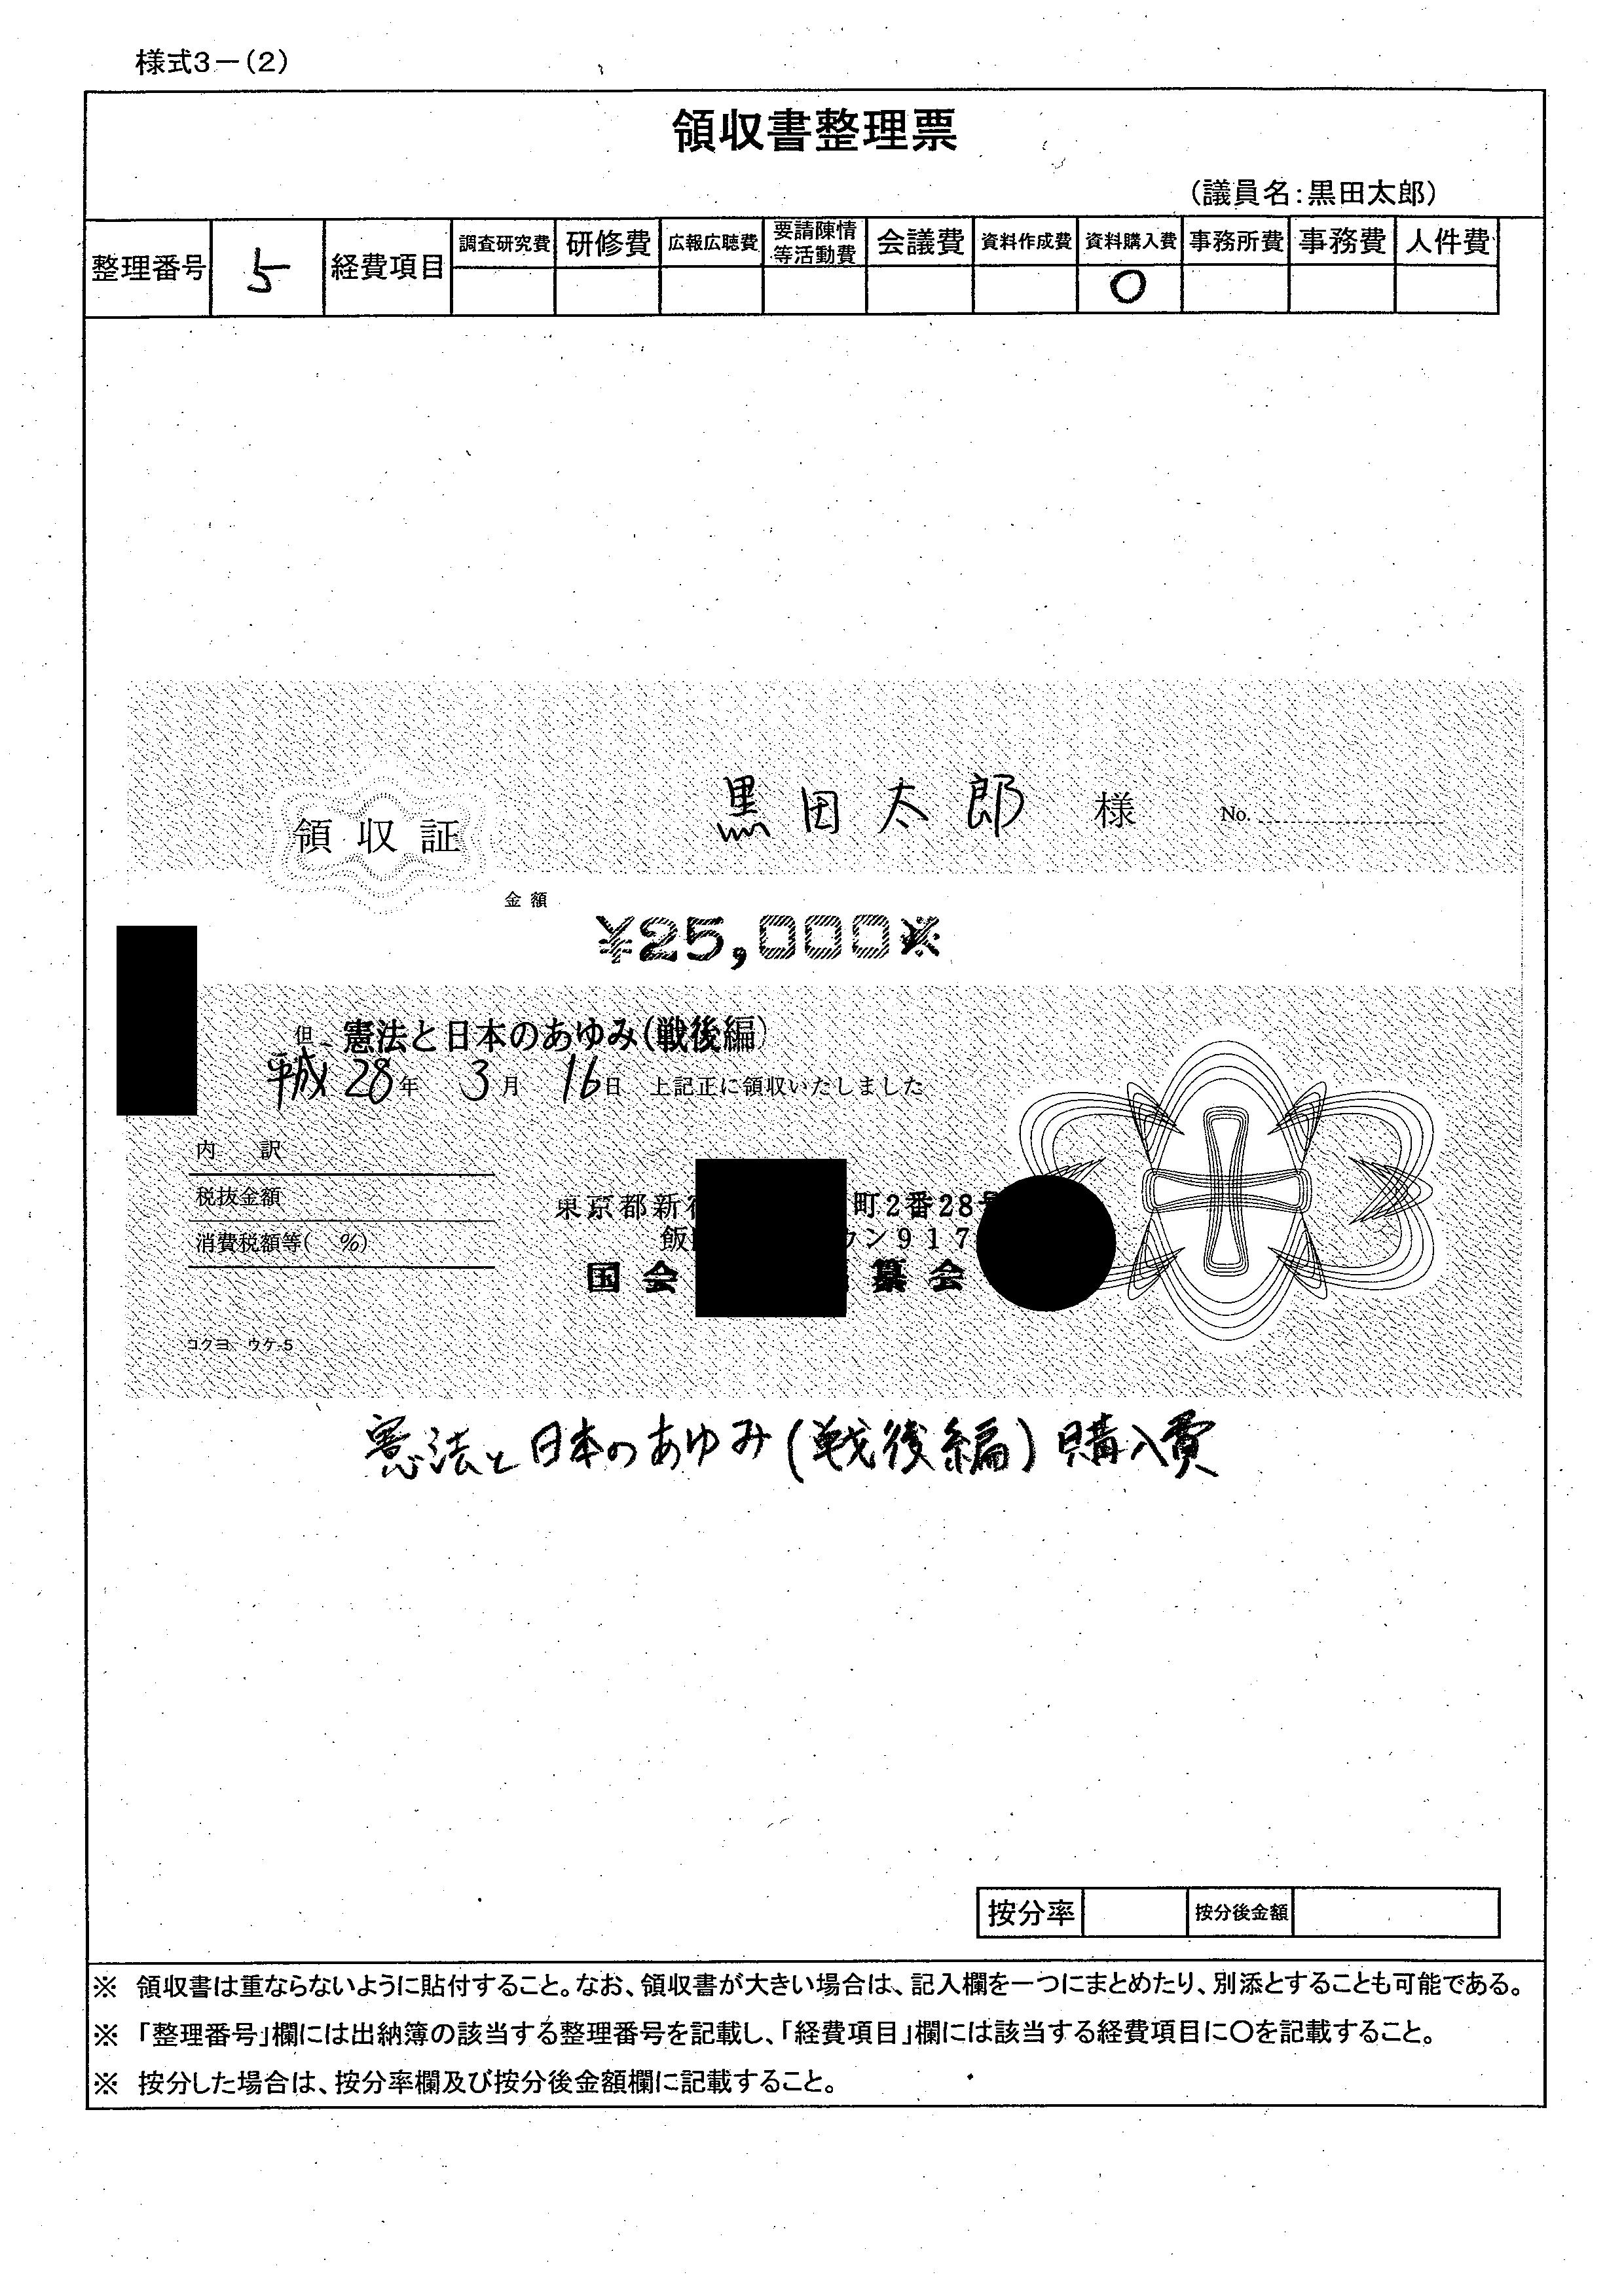 様式3－(2)
領収書整理票
(議員名:黒田太郎)
整理番号 5 経費項目 調査研究費 研修費 広報広聴費 要請陳情等活動費 会議費 資料作成費 資料購入費 事務所費 事務費 人件費
○
領収証 黒田太郎 様 No.
金額
¥25,000※
但 憲法と日本のあゆみ(戦後編)
平成28年 3月 16日 上記正に領収いたしました
内 訳
税抜金額
消費税額等( %)
東京都新 町2番28号
飯 ウン917
国会 纂会
コクヨ ウケ-5
憲法と日本のあゆみ(戦後編)購入費
按分率 按分後金額
※ 領収書は重ならないように貼付すること。なお、領収書が大きい場合は、記入欄を一つにまとめたり、別添とすることも可能である。
※ 「整理番号」欄には出納簿の該当する整理番号を記載し、「経費項目」欄には該当する経費項目に○を記載すること。
※ 按分した場合は、按分率欄及び按分後金額欄に記載すること。